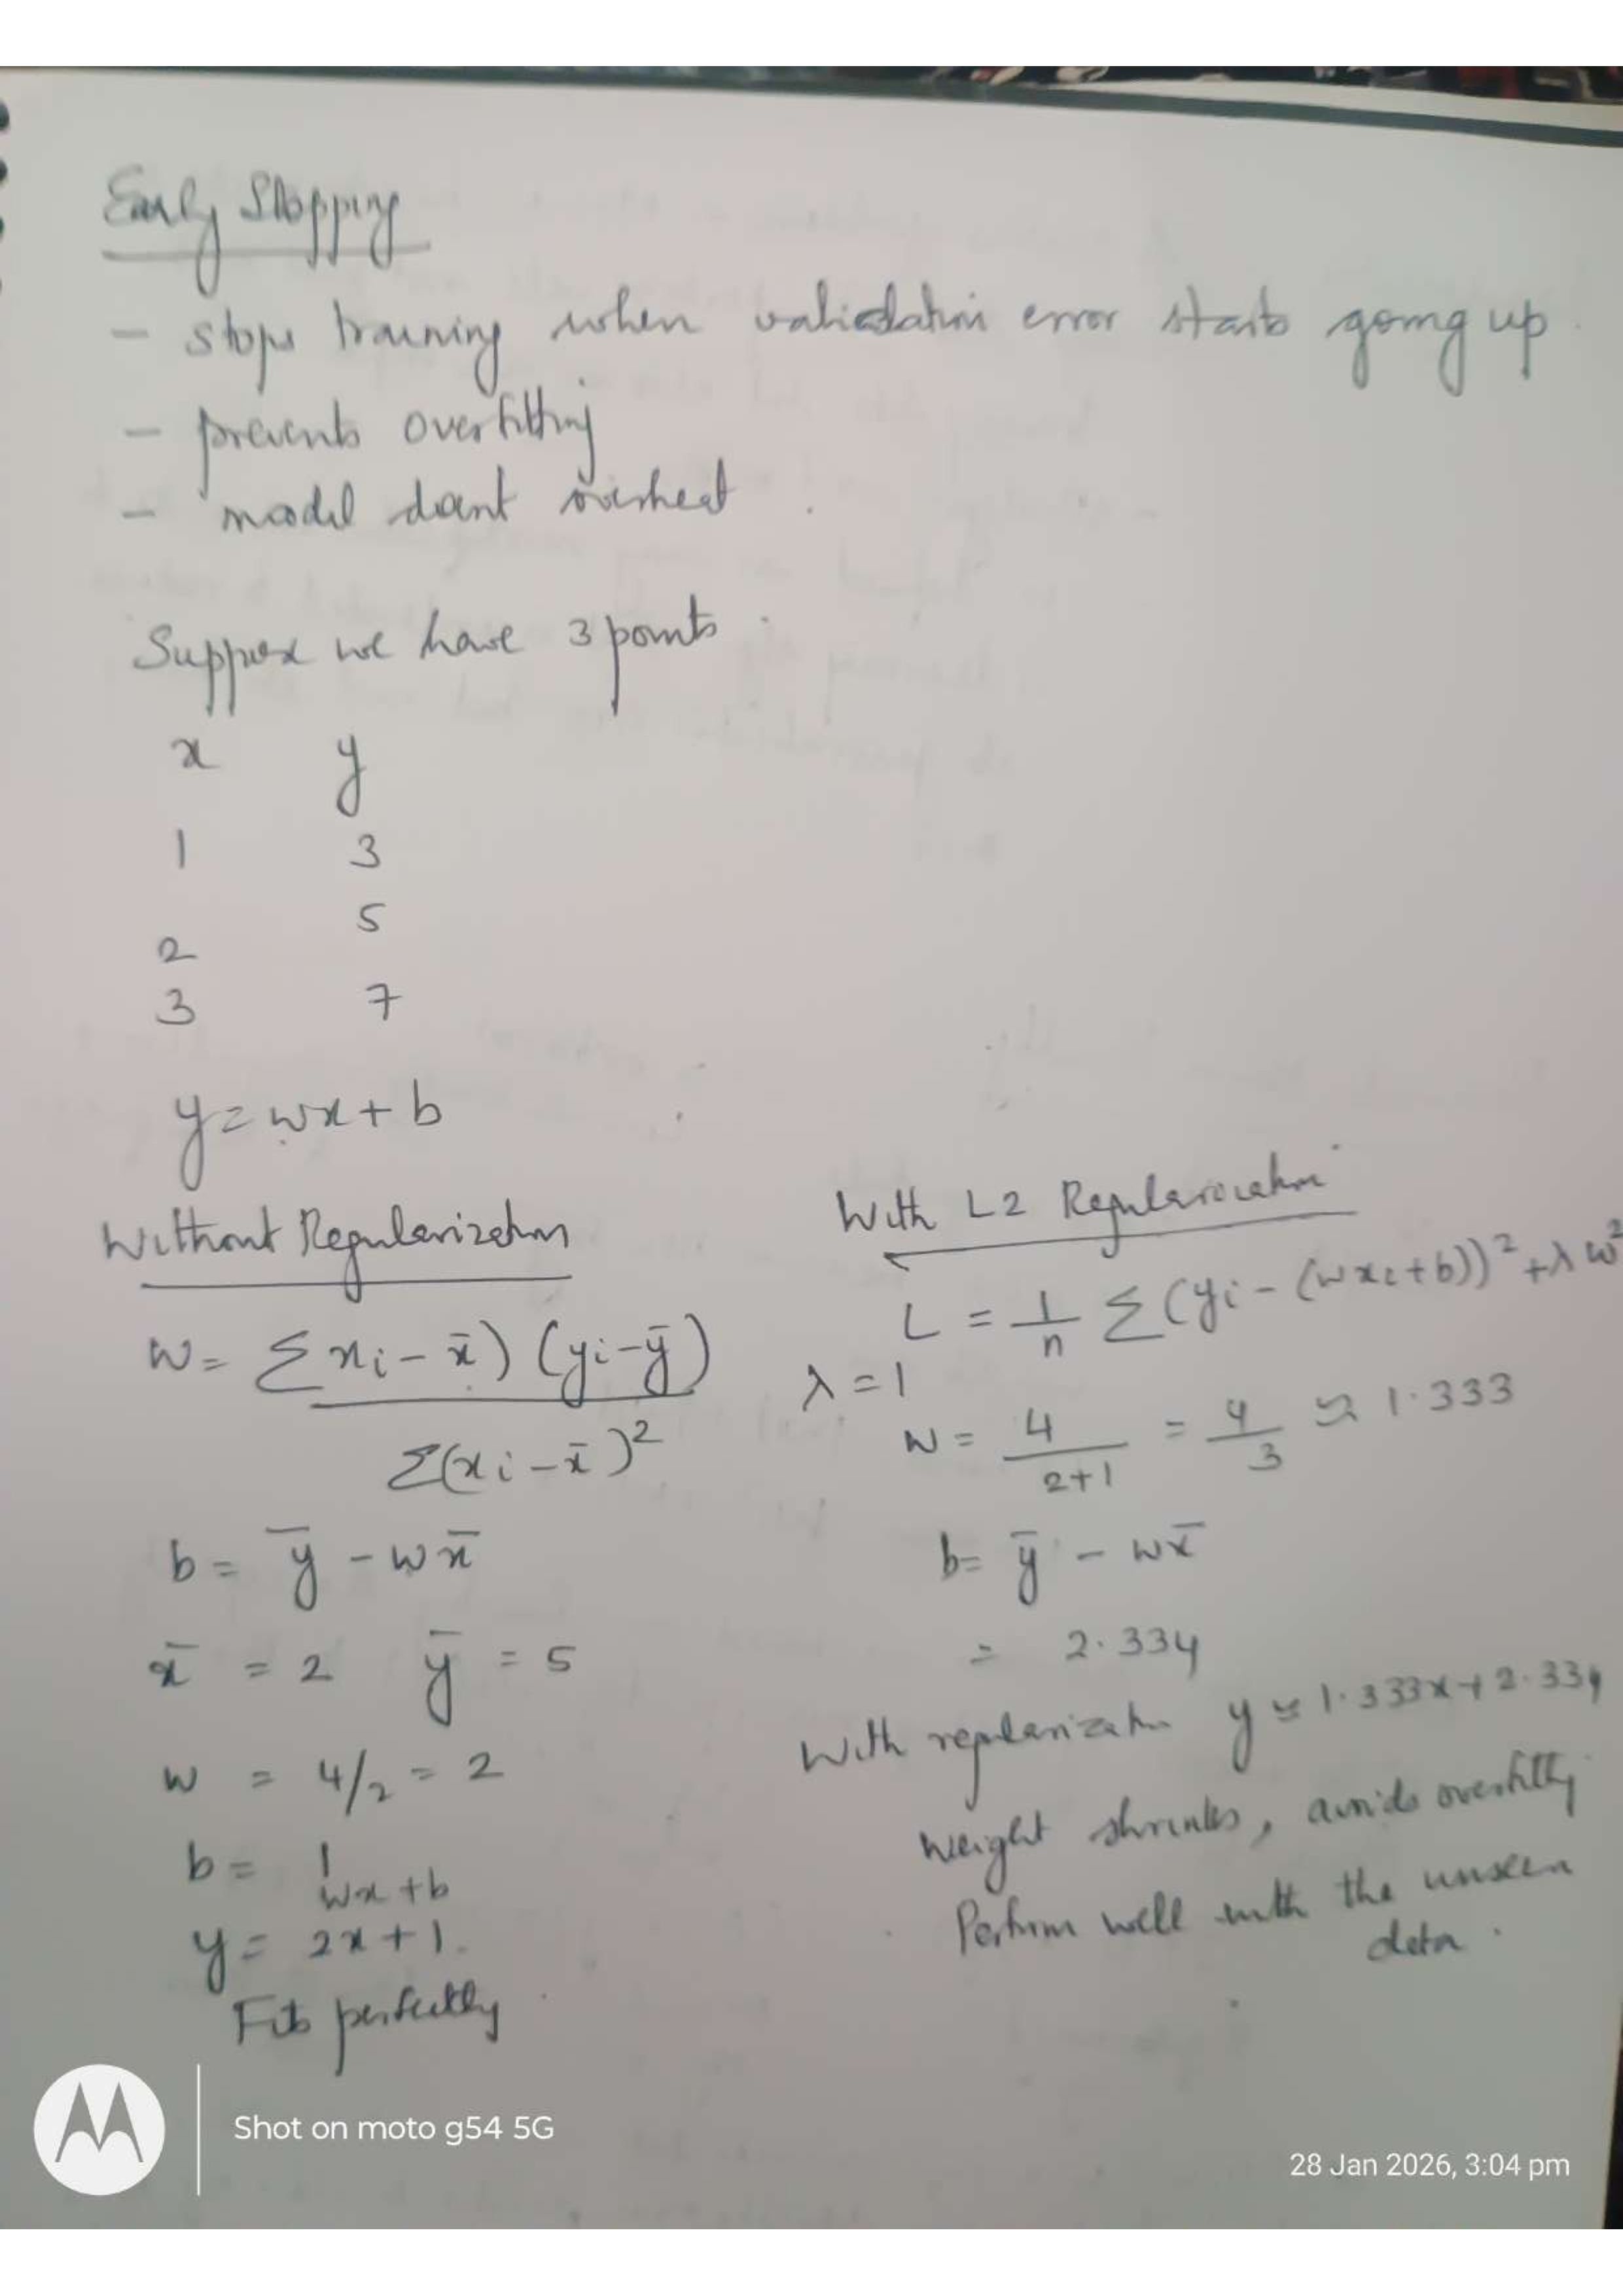 Early Stopping
- stops training when validation error starts going up.
- prevents overfitting
- model doesnt overheat.
Suppose we have 3 points.
x y
1 3
2 5
3 7
y = wx + b
Without Regularization
w = Σ xi - x̄) (yi - ȳ)
Σ(xi - x̄)²
b = ȳ - wx̄
x̄ = 2 ȳ = 5
w = 4/2 = 2
b = 1
wx + b
y = 2x + 1.
Fits perfectly.
With L2 Regularization
L = 1/n Σ (yi - (wxi + b))² + λ w²
λ = 1
w = 4/(2+1) = 4/3 ≈ 1.333
b = ȳ - wx̄
= 2.334
With regularization y ≈ 1.333x + 2.334
Weight shrinks, avoids overfitting
Perform well with the unseen
data.
Shot on moto g54 5G
28 Jan 2026, 3:04 pm